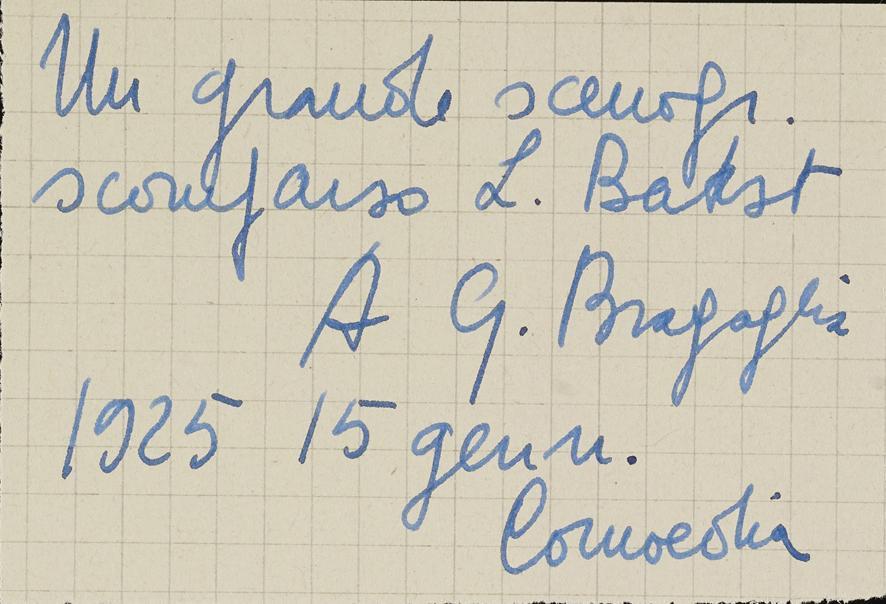 Un grande scenogr.
scomparso L. Bakst
A G. Bragaglia
1925 15 genn.
Comoedia